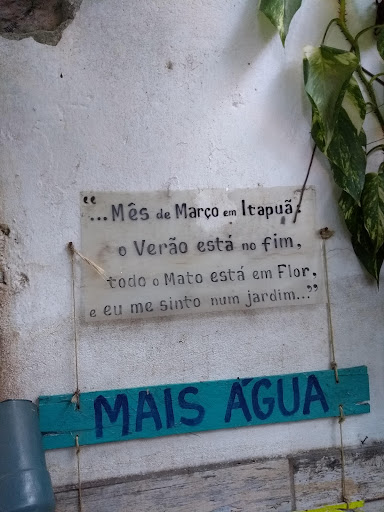 "...Mês de Março em Itapuã,
o Verão está no fim,
todo o Mato está em Flor,
e eu me sinto num jardim..."
MAIS ÁGUA